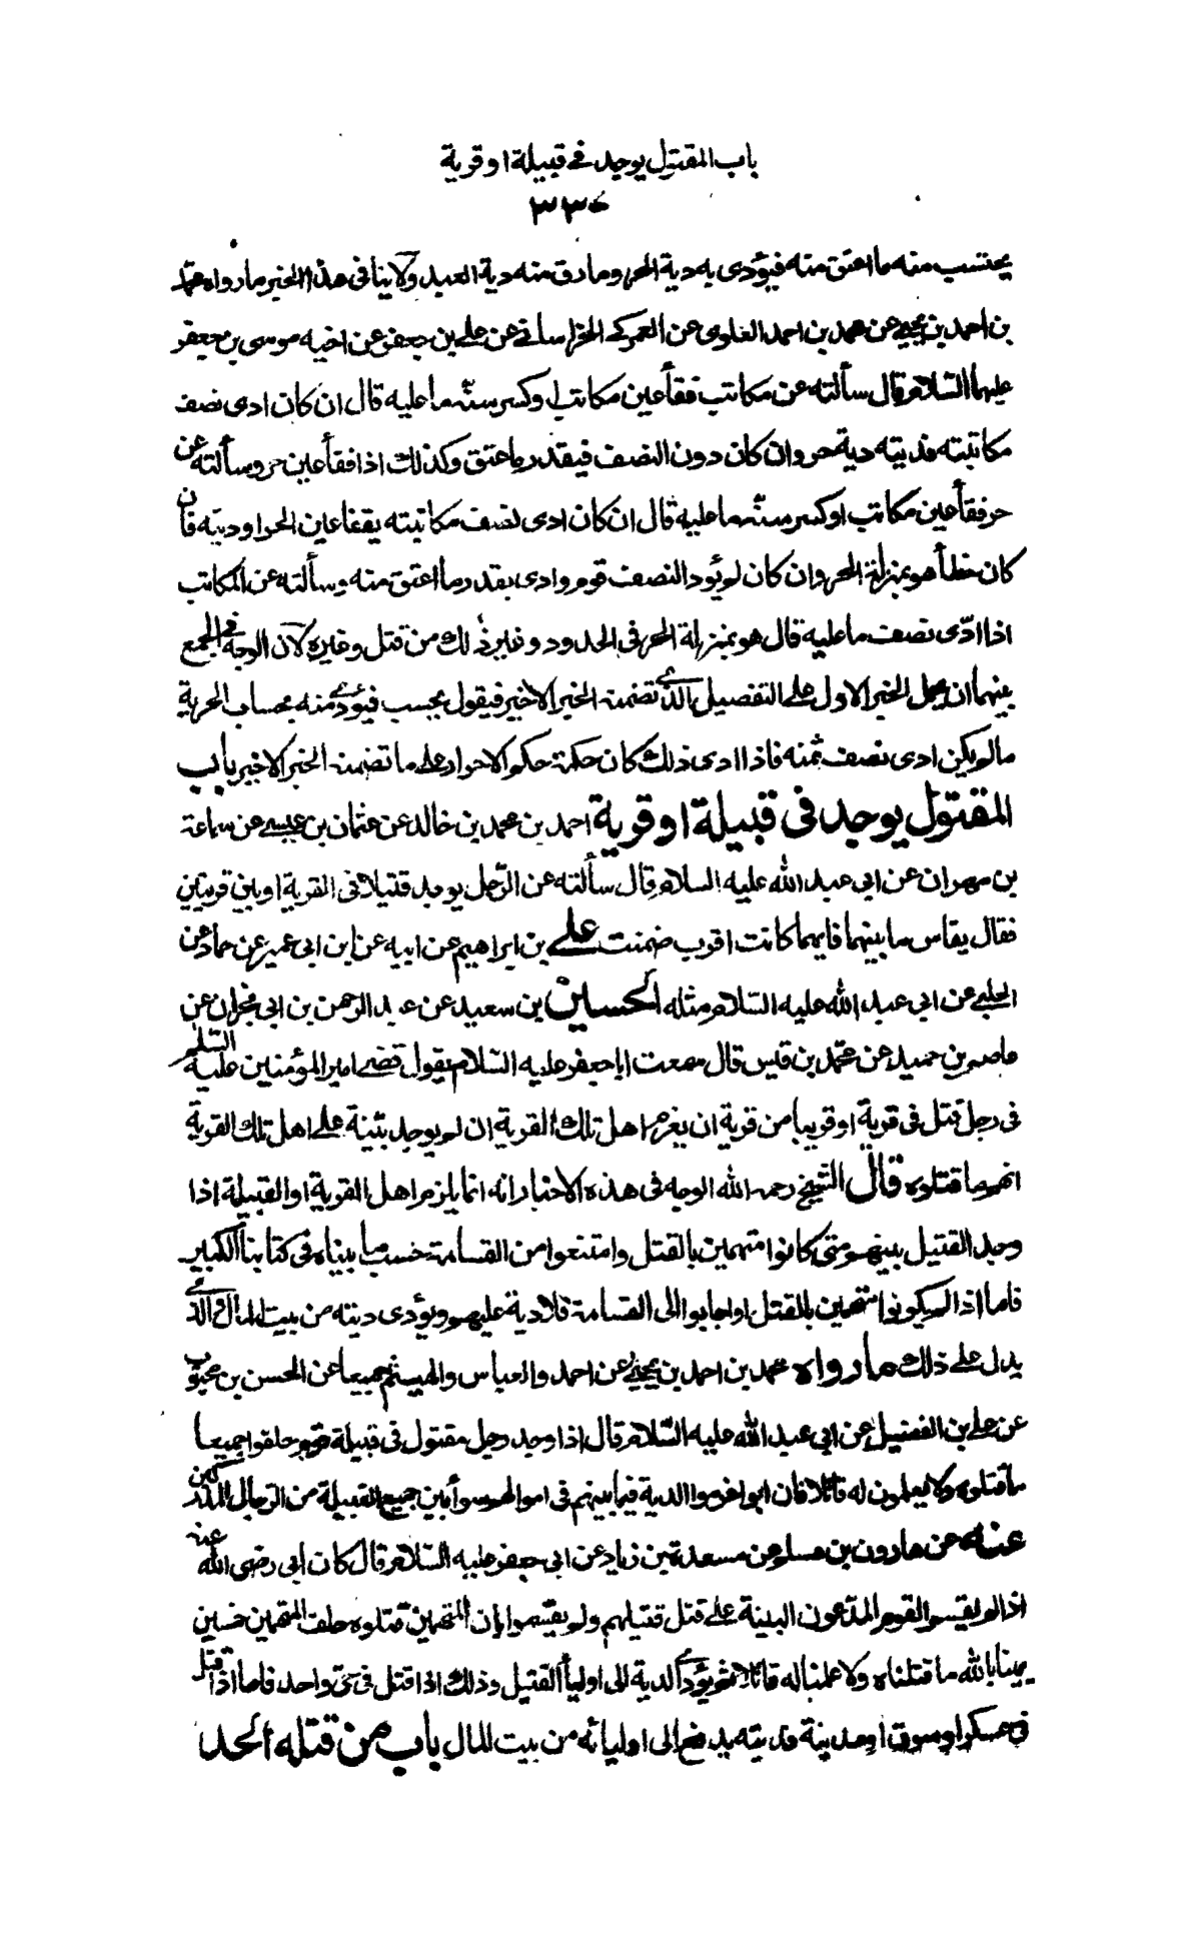 باب المقتول يوجد في قبيلة او قرية
٣٣٠
يحتسب منه ما اعتق منه فيؤدى به دية الحر وما رق منه دية العبد ولا ينافى هذا الخبر ما رواه محمد
بن احمد بن يحيى عن محمد بن احمد العلوى عن العمركى الخراسانى عن على بن جعفر عن اخيه موسى بن جعفر
عليهما السلام قال سألته عن مكاتب فقأ عين مكاتب او كسر سنه ما عليه قال ان كان ادى نصف
مكاتبته فديته دية حر وان كان دون النصف فبقدر ما عتق وكذلك اذا فقأ عين حر وسألته عن
حر فقأ عين مكاتب او كسر سنه ما عليه قال ان كان ادى نصف مكاتبته يفقأ عين الحر او ديته فان
كان خطأ هو بمنزلة الحر وان كان لم يؤد النصف قوم وادى بقدر ما اعتق منه وسألته عن المكاتب
اذا ادى نصف ما عليه قال هو بمنزلة الحر فى الحدود وغير ذلك من قتل وغيره لان الوجه فى الجمع
بينهما ان يحمل الخبر الاول على التفصيل الذى تضمنه الخبر الاخير فيقول يحسب فيؤدى منه بحساب الحرية
ما لم يكن ادى نصف ثمنه فاذا ادى ذلك كان حكمه حكم الاحرار على ما تضمنه الخبر الاخير باب
المقتول يوجد فى قبيلة او قرية احمد بن محمد بن خالد عن عثمان بن عيسى عن سماعة
بن مهران عن ابى عبد الله عليه السلام قال سألته عن الرجل يوجد قتيلا فى القرية او بين قريتين
فقال يقاس ما بينهما فايهما كانت اقرب ضمنت على بن ابراهيم عن ابيه عن ابن ابى عمير عن حماد عن
الحلبى عن ابى عبد الله عليه السلام مثله الحسين بن سعيد عن عبد الرحمن بن ابى نجران عن
عاصم بن حميد عن محمد بن قيس قال سمعت ابا جعفر عليه السلام يقول قضى امير المؤمنين عليه السلم
فى رجل قتل فى قرية او قريبا من قرية ان يغرم اهل تلك القرية ان لم يوجد بينة على اهل تلك القرية
انهم ما قتلوه قال الشيخ رحمه الله الوجه فى هذه الاخبار انه انما يلزم اهل القرية او القبيلة اذا
وجد القتيل بينهم متى كانوا متهمين بالقتل وامتنعوا من القسامة حسب ما بيناه فى كتابنا الكبير
فاما اذا لم يكونوا متهمين بالقتل او اجابوا الى القسامة فلا دية عليهم ويؤدى ديته من بيت المال والذى
يدل على ذلك ما رواه محمد بن احمد بن يحيى عن احمد والعباس والهيثم جميعا عن الحسن بن محبوب
عن على بن الفضيل عن ابى عبد الله عليه السلام قال اذا وجد رجل مقتول فى قبيلة قوم حلفوا جميعا
ما قتلوه ولا يعلمون له قاتلا فان ابوا اغرموا الدية فيما بينهم فى اموالهم سواء بين جميع القبيلة من الرجال المدركين
عنه عن هارون بن مسلم عن مسعدة بن زياد عن ابى جعفر عليه السلام قال كان ابى رضى الله عنه
اذا لم يقسم القوم المدعون البينة على قتل قتيلهم ولم يقسموا بان المتهمين قتلوه حلف المتهمين خمسين
يمينا بالله ما قتلناه ولا علمنا له قاتلا ثم يؤدى الدية الى اولياء القتيل وذلك اذا قتل فى حى واحد فاما اذا قتل
فى عسكر او سوق او مدينة فديته يدفع الى اوليائه من بيت المال باب من قتله الحد